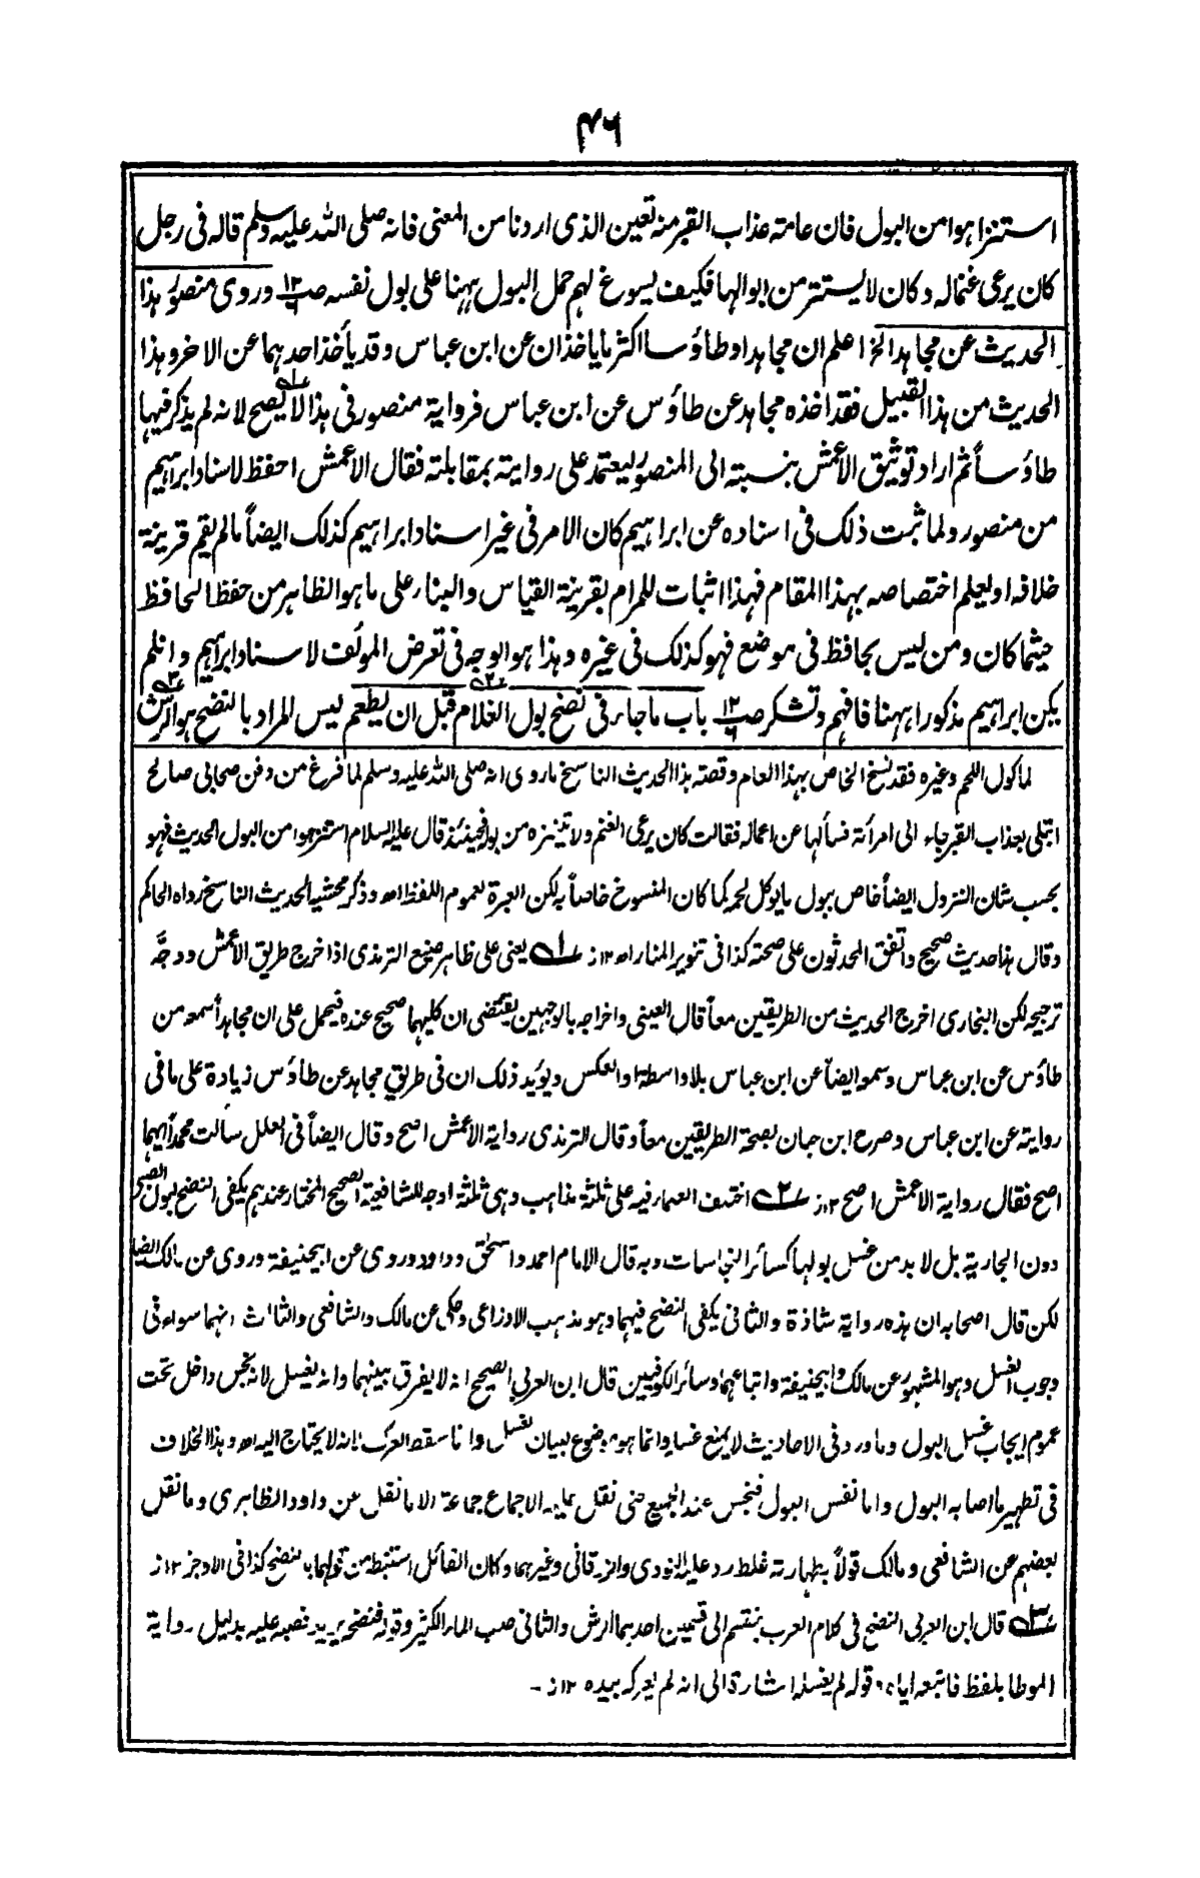 ۴۶
استنزاهوا من البول فان عامة عذاب القبر منه تعين الذى اردنا من المعنى فانه صلى الله عليه وسلم قاله فى رجل
كان يرعى غنما له وكان لا يستنتر من ابوالها فكيف يسوغ لهم حمل البول ههنا على بول نفسه صـ١٢ وروى منصور هذا
الحديث عن مجاهد الخ اعلم ان مجاهدا وطاؤسا اكثر ما ياخذان عن ابن عباس وقد يأخذ احدهما عن الاخر وهذا
الحديث من هذا القبيل فقد اخذه مجاهد عن طاؤس عن ابن عباس فرواية منصور فى هذا لا يصح لانه لم يذكر فيها
طاؤسا ثم اراد توثيق الأعمش بنسبته الى المنصور ليعتمد على روايته بمقابلته فقال الأعمش احفظ لاسناد ابراهيم
من منصور ولما ثبت ذلك فى اسناده عن ابراهيم كان الامر فى غير اسناد ابراهيم كذلك ايضاً مالم يقم قرينة
خلافه او يعلم اختصاصه بهذا المقام فهذا اثبات للمرام بقرينة القياس والبناء على ما هو الظاهر من حفظ الحافظ
حيثما كان ومن ليس بحافظ فى موضع فهو كذلك فى غيره وهذا هو الوجه فى تعرض المؤلف لاسناد ابراهيم وانلم
يكن ابراهيم مذكورا ههنا فافهم وتشكر صـ١٢ باب ماجاء فى نضح بول الغلام قبل ان يطعم ليس المراد بالنضح هو الرش
لماكول اللحم وغيره فقد نسخ الخاص بهذا العام وقصة هذا الحديث الناسخ ماروى انه صلى الله عليه وسلم لما فرغ من دفن صحابى صالح
ابتلى بعذاب القبر جاء الى امرأته فسألها عن اعماله فقالت كان يرعى الغنم ولا يتنزه من بوله فحينئذ قال عليه السلام استنزهوا من البول الحديث فهو
بحسب شان النزول ايضاً خاص ببول ما يوكل لحمه كما كان المنسوخ خاصاً به لكن العبرة لعموم اللفظ اهـ وذكر محشيه الحديث الناسخ رواه الحاكم
وقال هذا حديث صحيح واتفق المحدثون على صحته كذا فى تنوير المنار اهـ ١٢ ز ١ يعنى على ظاهر صنيع الترمذى اذا خرج طريق الأعمش ووجَّه
ترجيحه لكن البخارى اخرج الحديث من الطريقين معاً قال العينى واخراجه بالوجهين يقتضى ان كليهما صحيح عنده فيحمل على ان مجاهداً سمعه من
طاؤس عن ابن عباس وسمعه ايضاً عن ابن عباس بلا واسطة او العكس ويؤيد ذلك ان فى طريق مجاهد عن طاؤس زيادة على ما فى
روايته عن ابن عباس وصرح ابن حبان بصحة الطريقين معاً وقال الترمذى رواية الأعمش اصح وقال ايضاً فى العلل سألت محمداً ايهما
اصح فقال رواية الأعمش اصح ١٢ ز ٢ اختلف العلماء فيه على ثلثة مذاهب وهى ثلثة اوجه للشافعية الصحيح المختار عندهم يكفى النضح لبول الصبى
دون الجارية بل لابد من غسل بولها كسائر النجاسات وبه قال الامام احمد واسحٰق وداود وروى عن ابيحنيفة وروى عن مالك ايضا
لكن قال اصحابه ان هذه رواية شاذة والثانى يكفى النضح فيهما وهو مذهب الاوزاعى وحكى عن مالك والشافعى والثالث انهما سواء فى
وجوب الغسل وهو المشهور عن مالك وابيحنيفة واتباعهما وسائر الكوفيين قال ابن العربى الصحيح انه لا يفرق بينهما وانه يغسل لانه نجس داخل تحت
عموم ايجاب غسل البول وما ورد فى الاحاديث لا يمنع غسله وانما هو موضوع لبيان الغسل وانما سقط العرك لانه لا يحتاج اليه اهـ وهذا الخلاف
فى تطهير ما اصابه البول واما نفس البول فنجس عند الجميع حتى نقل عليه الاجماع جماعة الا ما نقل عن داود الظاهرى وما نقل
بعضهم عن الشافعى ومالك قولاً بطهارته غلط رد عليه النووى والزرقانى وغيرهما وكان القائل استنبطه من قولهما بالنضح كذا فى الاوجز ١٢ ز
٣ قال ابن العربى النضح فى كلام العرب ينقسم الى قسمين احدهما الرش والثانى صب الماء الكثير وقوله فنضحه يريد نصبه عليه بدليل رواية
الموطا بلفظ فاتبعه اياه، قوله لم يغسله اشارة الى انه لم يعركه بيده ١٢ ز -